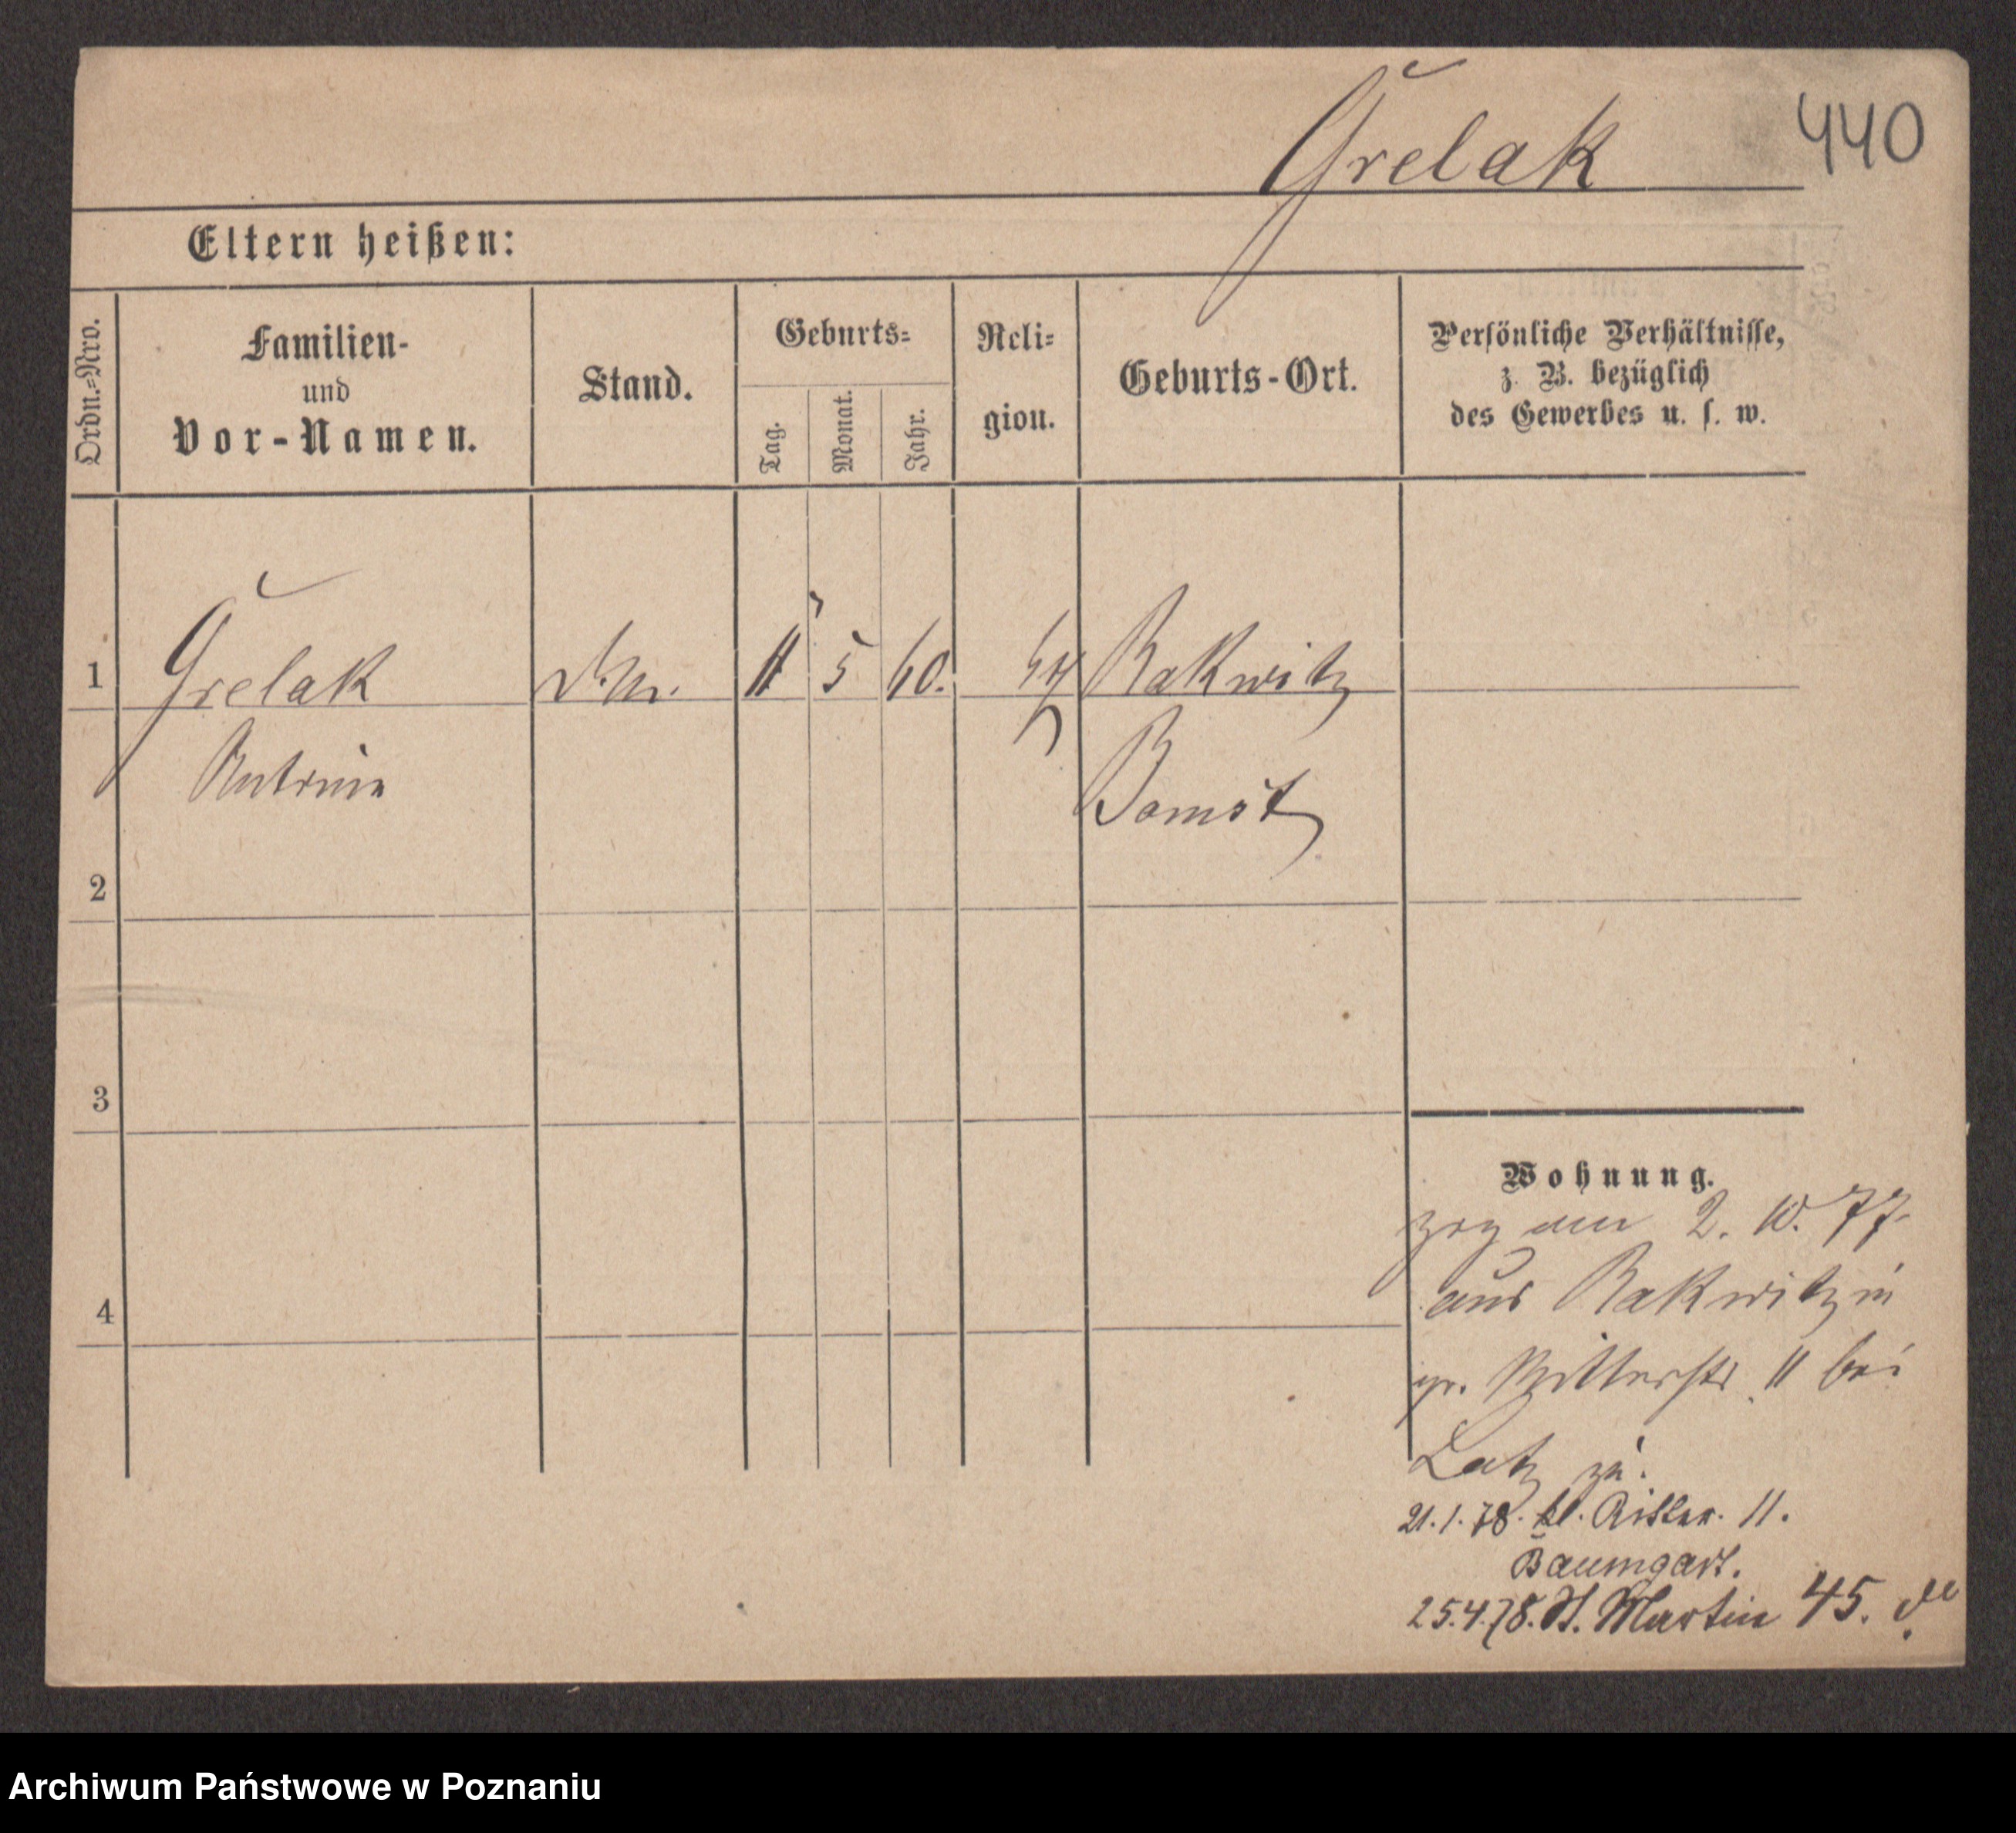 Grelak 440
Eltern heißen:
Ordn.=Nro.
Familien-
und
Vor-Namen.
Stand.
Geburts=
Tag.
Monat.
Jahr.
Reli=
gion.
Geburts-Ort.
Persönliche Verhältnisse,
z. B. bezüglich
des Gewerbes u. s. w.
1 Grelak 5 60. Rakwitz
Bomst
2
3
4
Wohnung.
zog am 2. 10. 77
aus Rakwitz in
gr. Ritterstr. 11 bei
Latz zu.
21.1.78. kl. Ritter. 11.
Baumgart.
25.4.78. St. Martin 45.
Archiwum Państwowe w Poznaniu